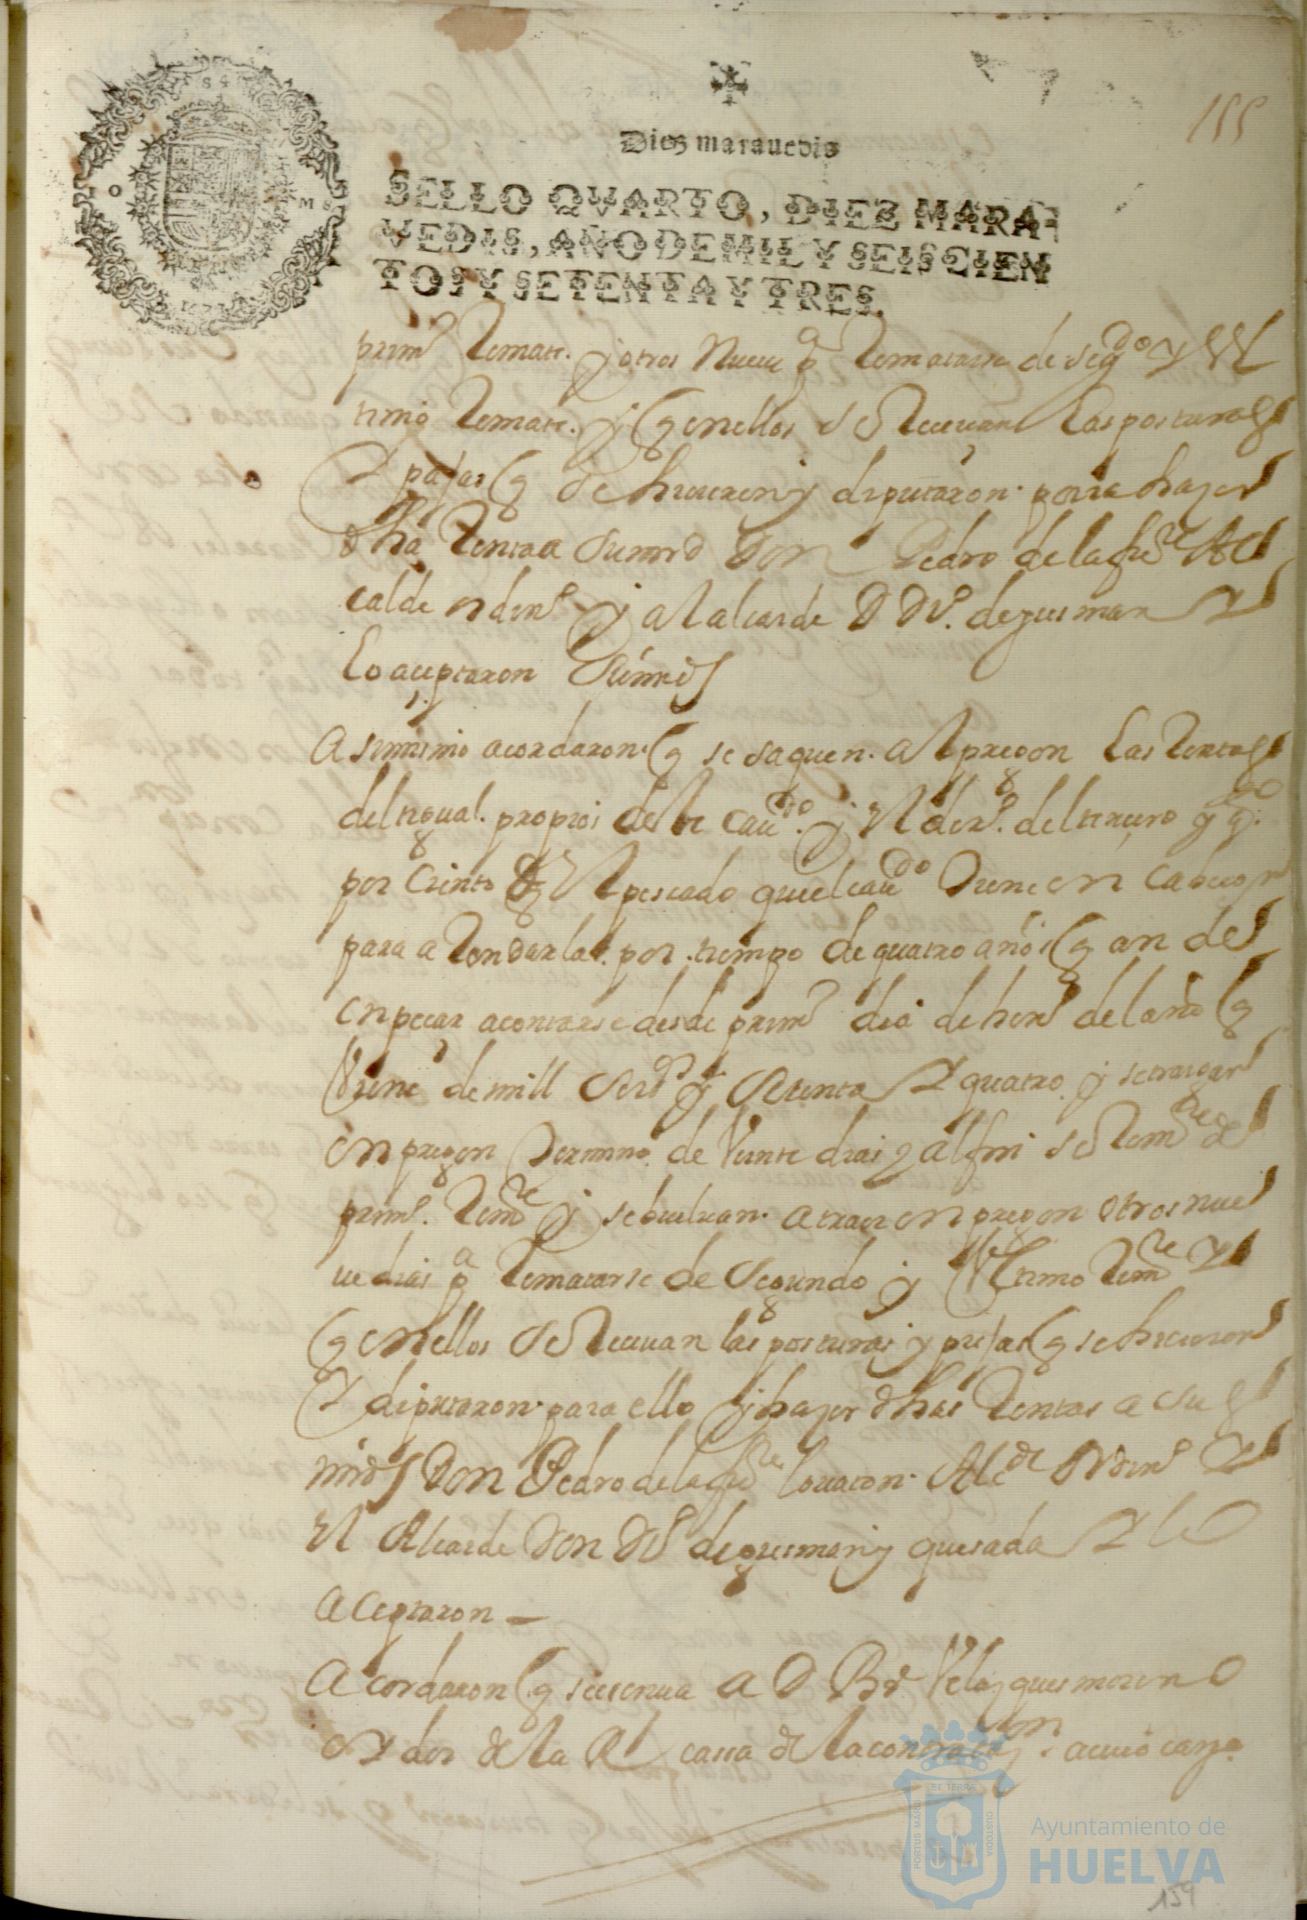 155
Diez marauedis
SELLO QVARTO, DIEZ MARA-
VEDIS, AÑO DE MIL Y SEISCIEN
TOS Y SETENTA Y TRES.
prim^o Remate. y otros nueue p^a Rematarse de seg^do y Vl
timo Remate. y q en ellos se Reciuan las posturas
y pujas q se hicieren y diputaron para hazer
dha Renta a su mrd Don Pedro de la fu^te Al
calde ordin^o y al alcaide D D^o. de gusman y
lo aceptaron sus mrds
Asimismo acordaron q se saquen al pregon las Rentas
del propios deste cau^do. y el del terçero y q^to
por ciento del pescado que el cau^do tiene en cabeçon
para aRendarlas por tiempo de quatro años q an de
enpeçar a contarse desde prim^o dia de hen^o del año q
viene de mill seis^s y setenta y quatro y se traigan
en pregon termino de veinte dias y al fin se Rem^te de
prim^o. Rem^te y se buelvan a traer en pregon otros nue
ue dias p^a Rematarse de segundo y Vltimo Rem^te y
q en ellos se Reciuan las posturas y pujas q se hicieren
y diputaron para ello y hazer dhas Rentas a sus
mrds Don Pedro de la fu^te louaton Alc^de Ordin^o y
el Alcaide Don D^o de gusman y quesada y lo
aceptaron
Acordaron q se escriua a D B^r Velazques moreno
oydor de la Rl casa de la contrataçion a cuio cargo
Ayuntamiento de
HUELVA
PORTUS MARIS ET TERRAE CUSTODIA
159